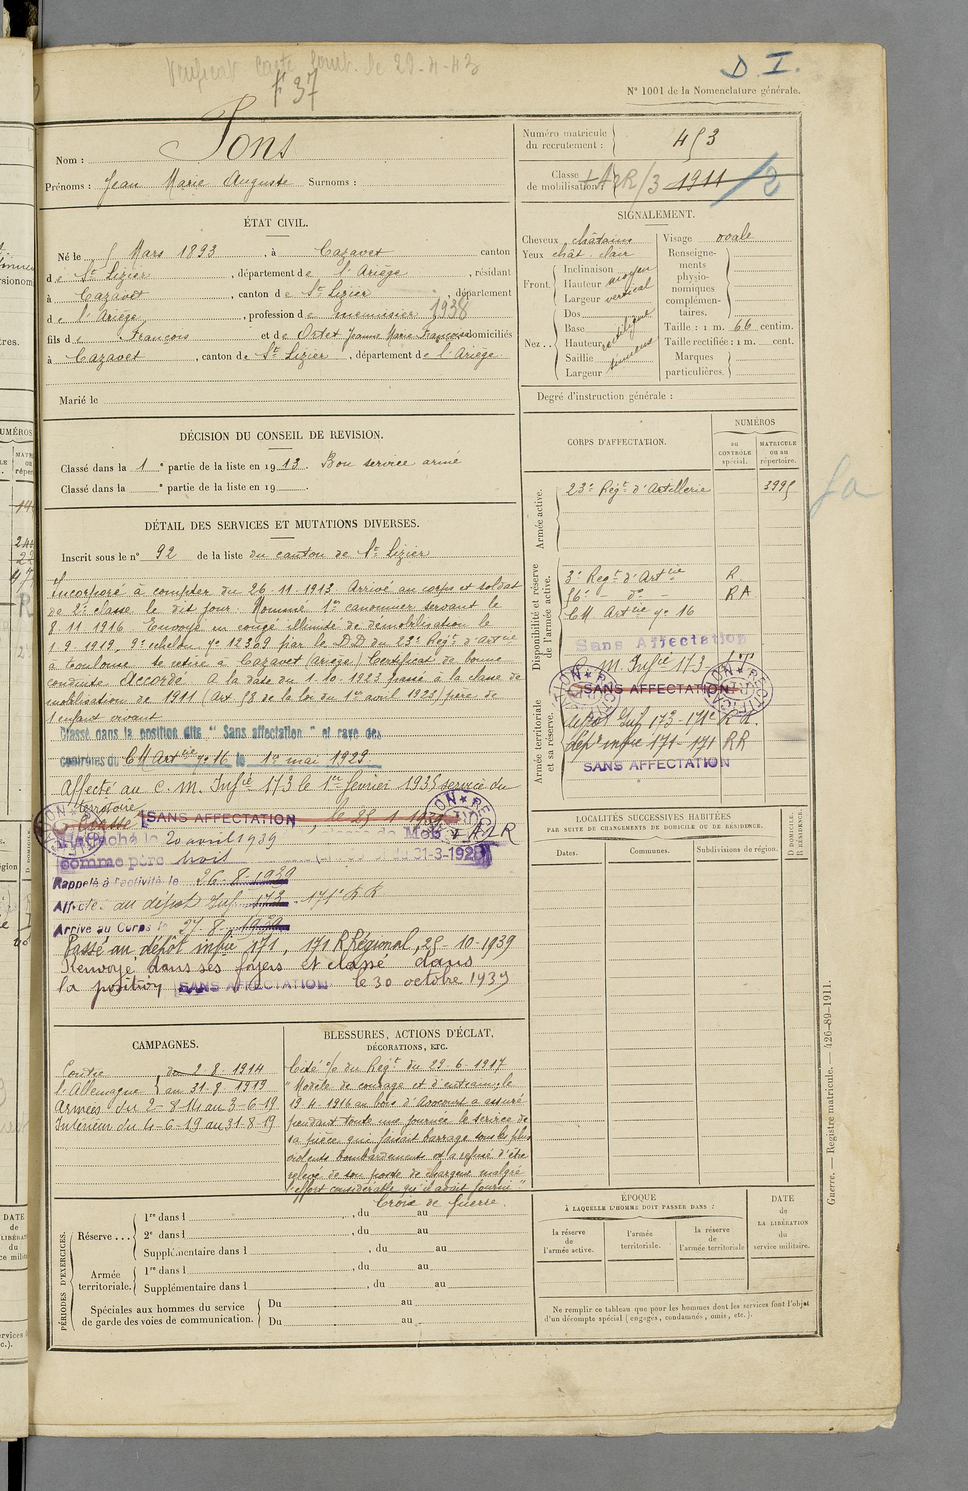 Verificat carte comb. le 29-4-43
F 37
D. I.
N° 1001 de la Nomenclature générale.
Nom : Pons
Prénoms : Jean Marie Auguste Surnoms :
Numéro matricule du recrutement : 453
Classe de mobilisation 1911 /2
ÉTAT CIVIL.
Né le 5 Mars 1893, à Cazavet canton
de St Lizier, département de l'Ariège, résidant
à Cazavet, canton de St Lizier, département
de l'Ariège, profession de menuisier 1938
fils de François et de Ortet Jeanne Marie Françoise domiciliés
à Cazavet, canton de St Lizier, département de l'Ariège
Marié le
SIGNALEMENT.
Cheveux châtains
Yeux chât. clair
Front. Inclinaison moyen
Hauteur vertical
Largeur
Nez .. Dos
Base rectiligne
Hauteur
Saillie
Largeur
Visage ovale
Renseignements physionomiques complémentaires.
Taille : 1 m. 66 centim.
Taille rectifiée : 1 m. cent.
Marques particulières.
Degré d'instruction générale :
DÉCISION DU CONSEIL DE REVISION.
Classé dans la 1e partie de la liste en 1913. Bon service armé
Classé dans la e partie de la liste en 19
DÉTAIL DES SERVICES ET MUTATIONS DIVERSES.
Inscrit sous le n° 92 de la liste du canton de St Lizier
Incorporé à compter du 26.11.1913. Arrivé au corps et soldat
de 2e classe le dit jour. Nommé 1er canonnier servant le
8.11.1916. Envoyé en congé illimité de démobilisation le
1.9.1919, 9e échelon, n° 12369 par le D.D du 23e Regt d'artie
à Toulouse se retire à Cazavet (Ariège) Certificat de bonne
conduite Accordé. A la date du 1.10.1923 passé à la classe de
mobilisation de 1911 (Art. 58 de la loi du 1er avril 1923) père de
1 enfant vivant
Classé dans la position dite "Sans affectation" et rayé des
contrôles du CM Artie n° 16 le 1er mai 1929
Affecté au c. m. Infie 173 le 1er février 1935 service du
territoire
Classé SANS AFFECTATION, le 25 1 1939
le 20 avril 1939
comme père trois 31-3-1928
Rappelé à l'activité le 26-8-1939
Affecté au dépôt Inf. 173 - 171e RR
Arrivé au Corps le 27-8-1939
Passé au dépôt infie 171, 171 R Régional, 25-10-1939
Renvoyé dans ses foyers et classé dans
la position SANS AFFECTATION le 30 octobre 1939
CORPS D'AFFECTATION.
NUMÉROS
au CONTRÔLE spécial.
MATRICULE ou au répertoire.
Armée active.
23e Regt d'Artillerie 3995
Disponibilité et réserve de l'armée active.
3e Regt d'Artie R.
56e - do - RA
CM Artie n° 16
Sans Affectation
Armée territoriale et sa réserve.
C. m. Infie 173
SANS AFFECTATION
dépôt Inf 173-171e R.R.
Dépt infie 171-171 RR
SANS AFFECTATION
LOCALITÉS SUCCESSIVES HABITÉES
PAR SUITE DE CHANGEMENTS DE DOMICILE OU DE RÉSIDENCE.
Dates.
Communes.
Subdivisions de région.
D DOMICILE.
R RÉSIDENCE.
CAMPAGNES.
Contre l'Allemagne du 2-8-1914
au 31-8-1919
Armées du 2-8-14 au 3-6-19
Intérieur du 4-6-19 au 31-8-19
BLESSURES, ACTIONS D'ÉCLAT,
DÉCORATIONS, ETC.
Cité o/ du Regt du 29.6.1917
"Modèle de courage et d'entrain, le
19.4.1916 au bois d'Avocourt a assuré
pendant toute une journée le service de
sa pièce que faisait barrage sous les plus
violents bombardements et a refusé d'être
relevé de son poste de chargeur malgré
l'effort considérable qu'il avait fourni."
Croix de Guerre.
PÉRIODES D'EXERCICES.
Réserve ... 1re dans l , du au
2e dans l , du au
Supplémentaire dans l , du au
Armée territoriale. 1re dans l , du au
Supplémentaire dans l , du au
Spéciales aux hommes du service de garde des voies de communication. Du au
Du au
ÉPOQUE
À LAQUELLE L'HOMME DOIT PASSER DANS :
la réserve de l'armée active.
l'armée territoriale.
la réserve de l'armée territoriale
DATE de LA LIBÉRATION du service militaire.
Ne remplir ce tableau que pour les hommes dont les services font l'objet
d'un décompte spécial (engagés, condamnés, omis, etc.).
Guerre. — Registre matricule. — 426-89-1911.